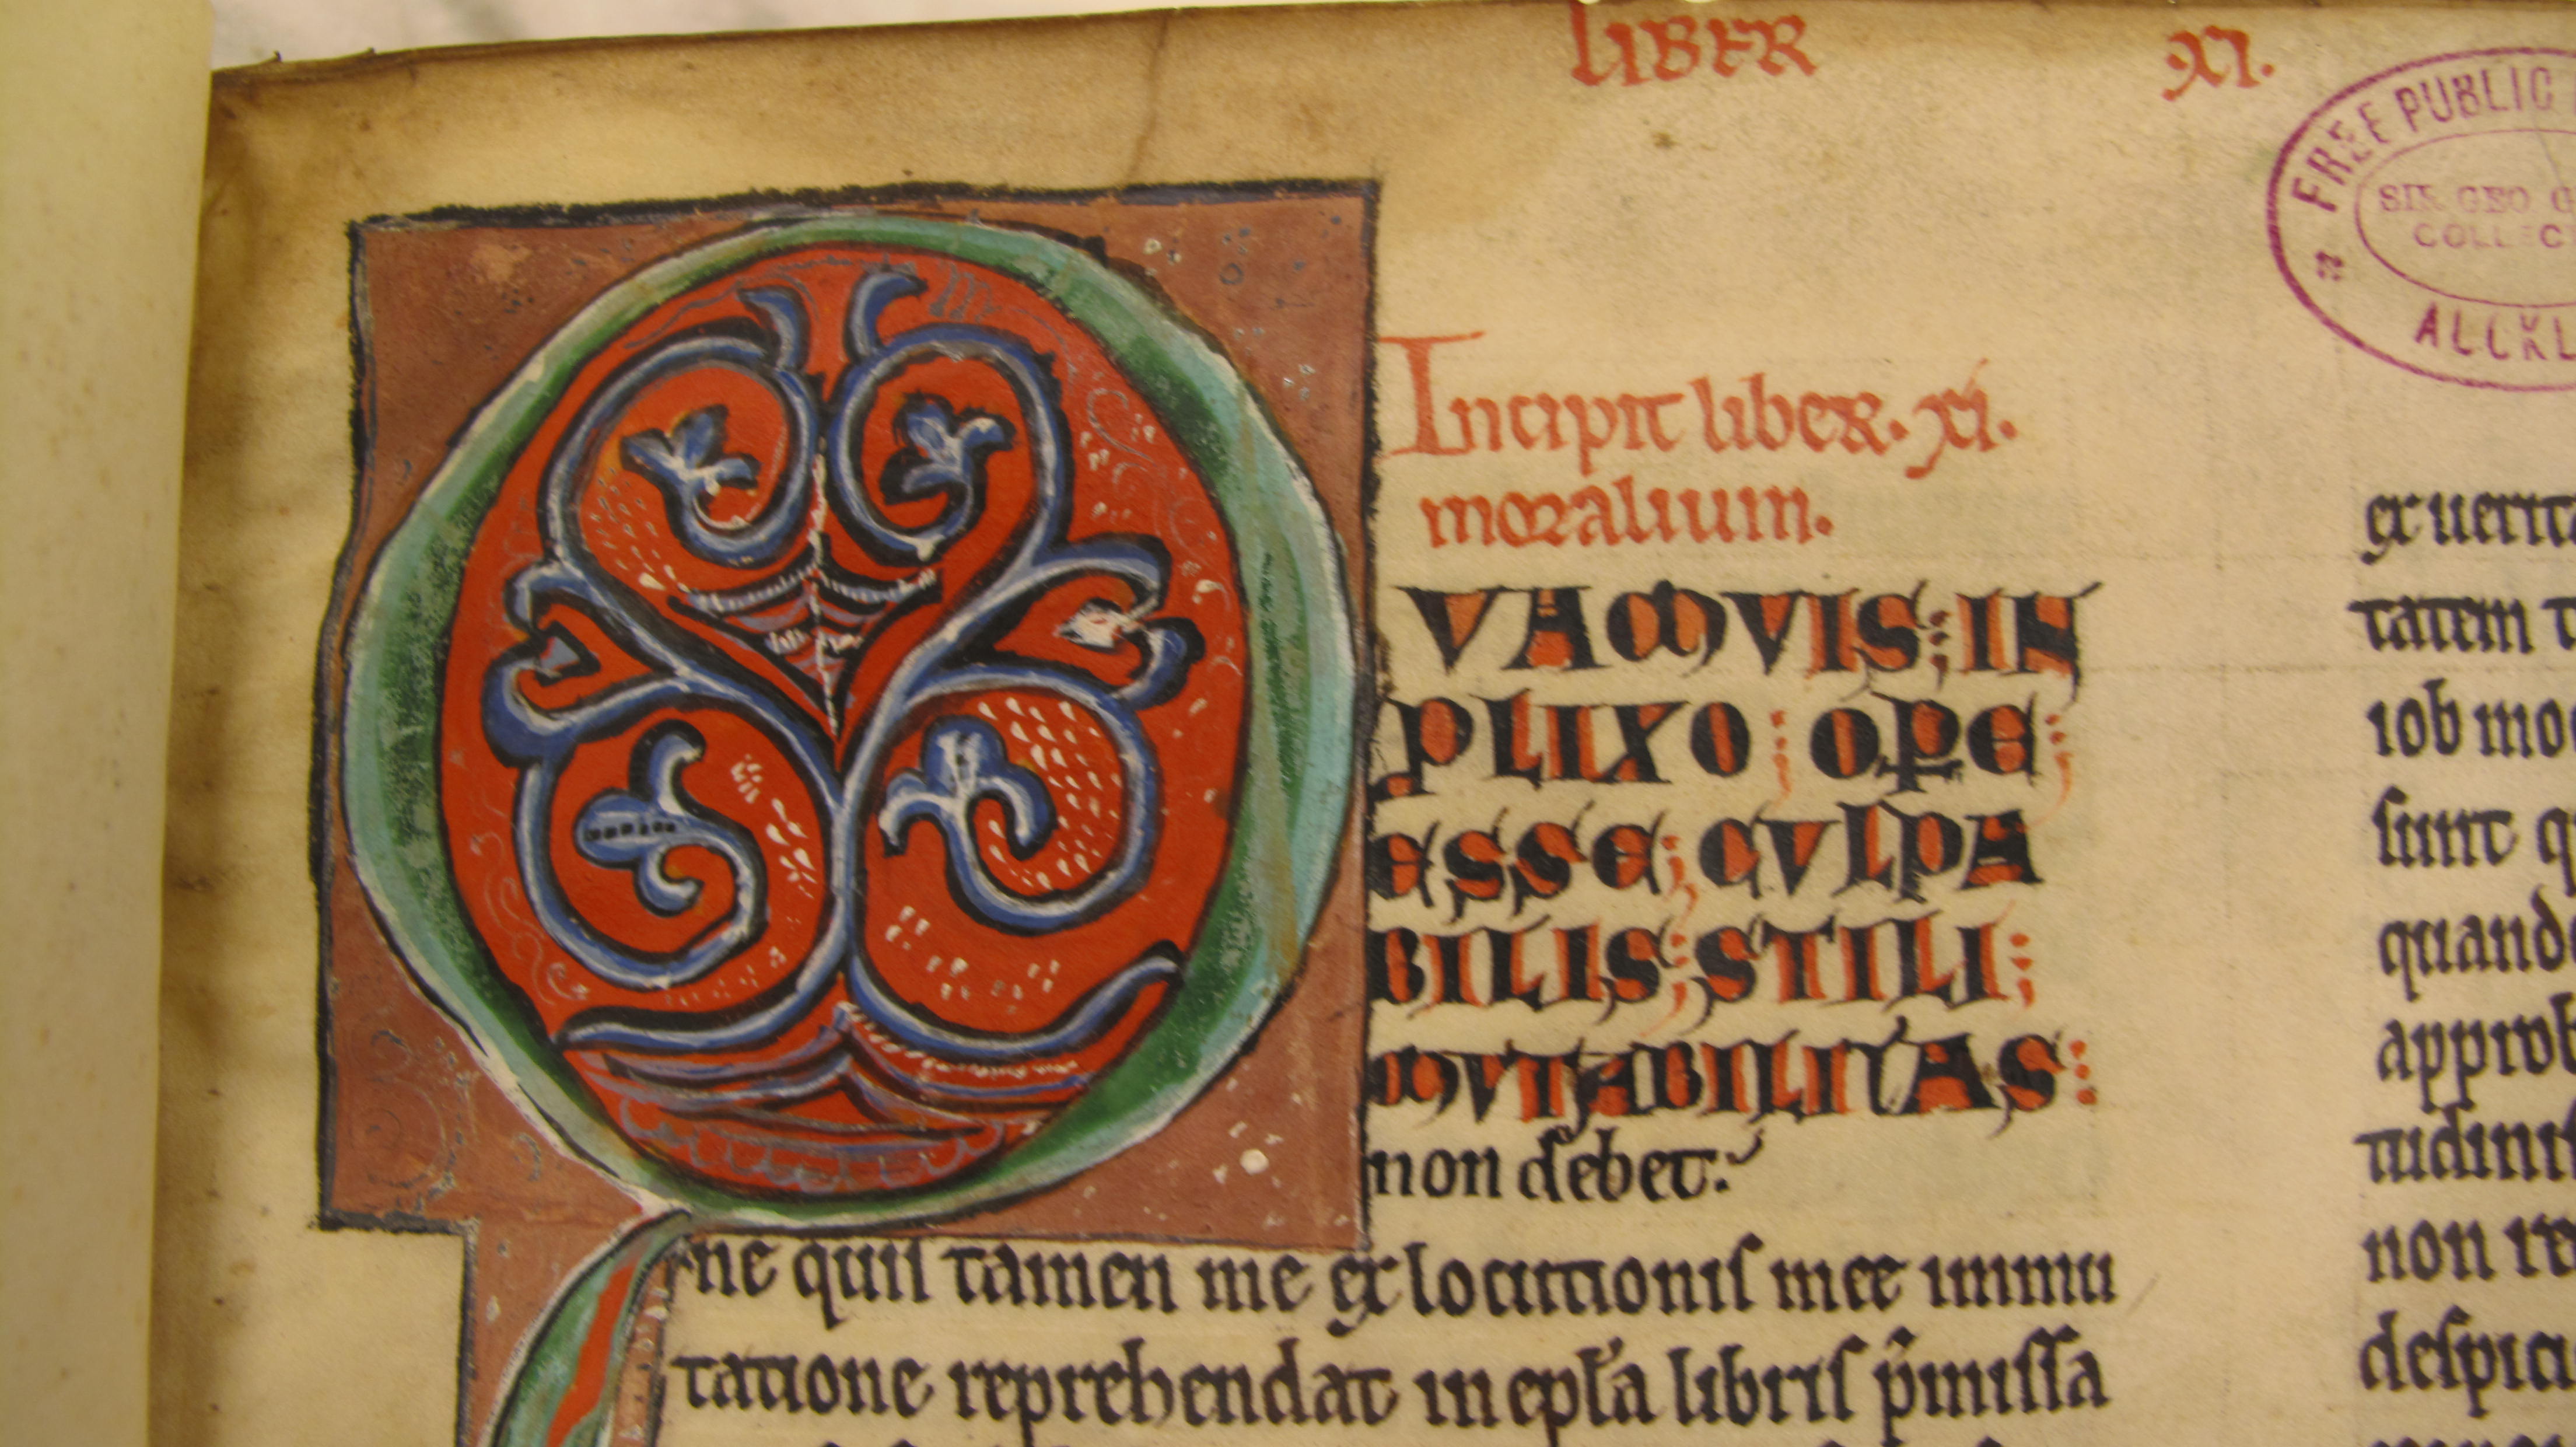 LIBER .XI.
FREE PUBLIC
SIR GEO G
COLLEC
AUCKL
Incipit liber .xi.
moralium.
QVAMVIS: IN
PLIXO: OPE:
ESSE: CVLPA
BILIS: STILI:
MVTABILITAS:
non debet:
ne quis tamen me ex locutionis mee immu
tatione reprehendat in epła libris p̃missa
ex uerita
tatem t
iob mo
sunt q
quand
approb
tudinis
non re
despici